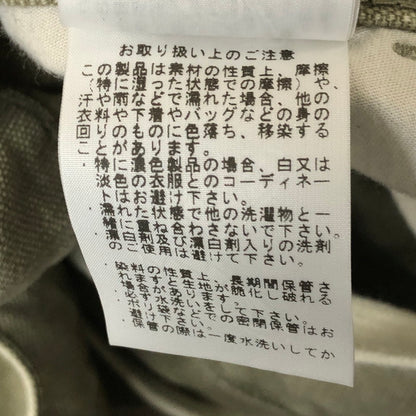 お取り扱い上のご注意
この製品は素材の性質上、摩擦
（特に湿った状態での摩擦）や、
汗や雨などで濡れた場合、他の
衣料や下着やバッグなどの身の
回りのものに色落ち、移染する
ことがあります。
・特に濃色製品の場合、白又は
淡色の衣服とのコーディネー
トはお避け下さい。
・濡れた状態で他の洗濯物と一
緒に重ね合わさないで下さい。
・白剤及び漂白剤入りの洗剤
ご使用は避けて下さい。
・染料の性質上、長期間保管さ
れますと生地が脆化し破れる
場合があります。
必ず水洗いをして下さい。
ポリ袋などでの密閉保管はお
避け下さい。
・保管の際は一度水洗いしてか